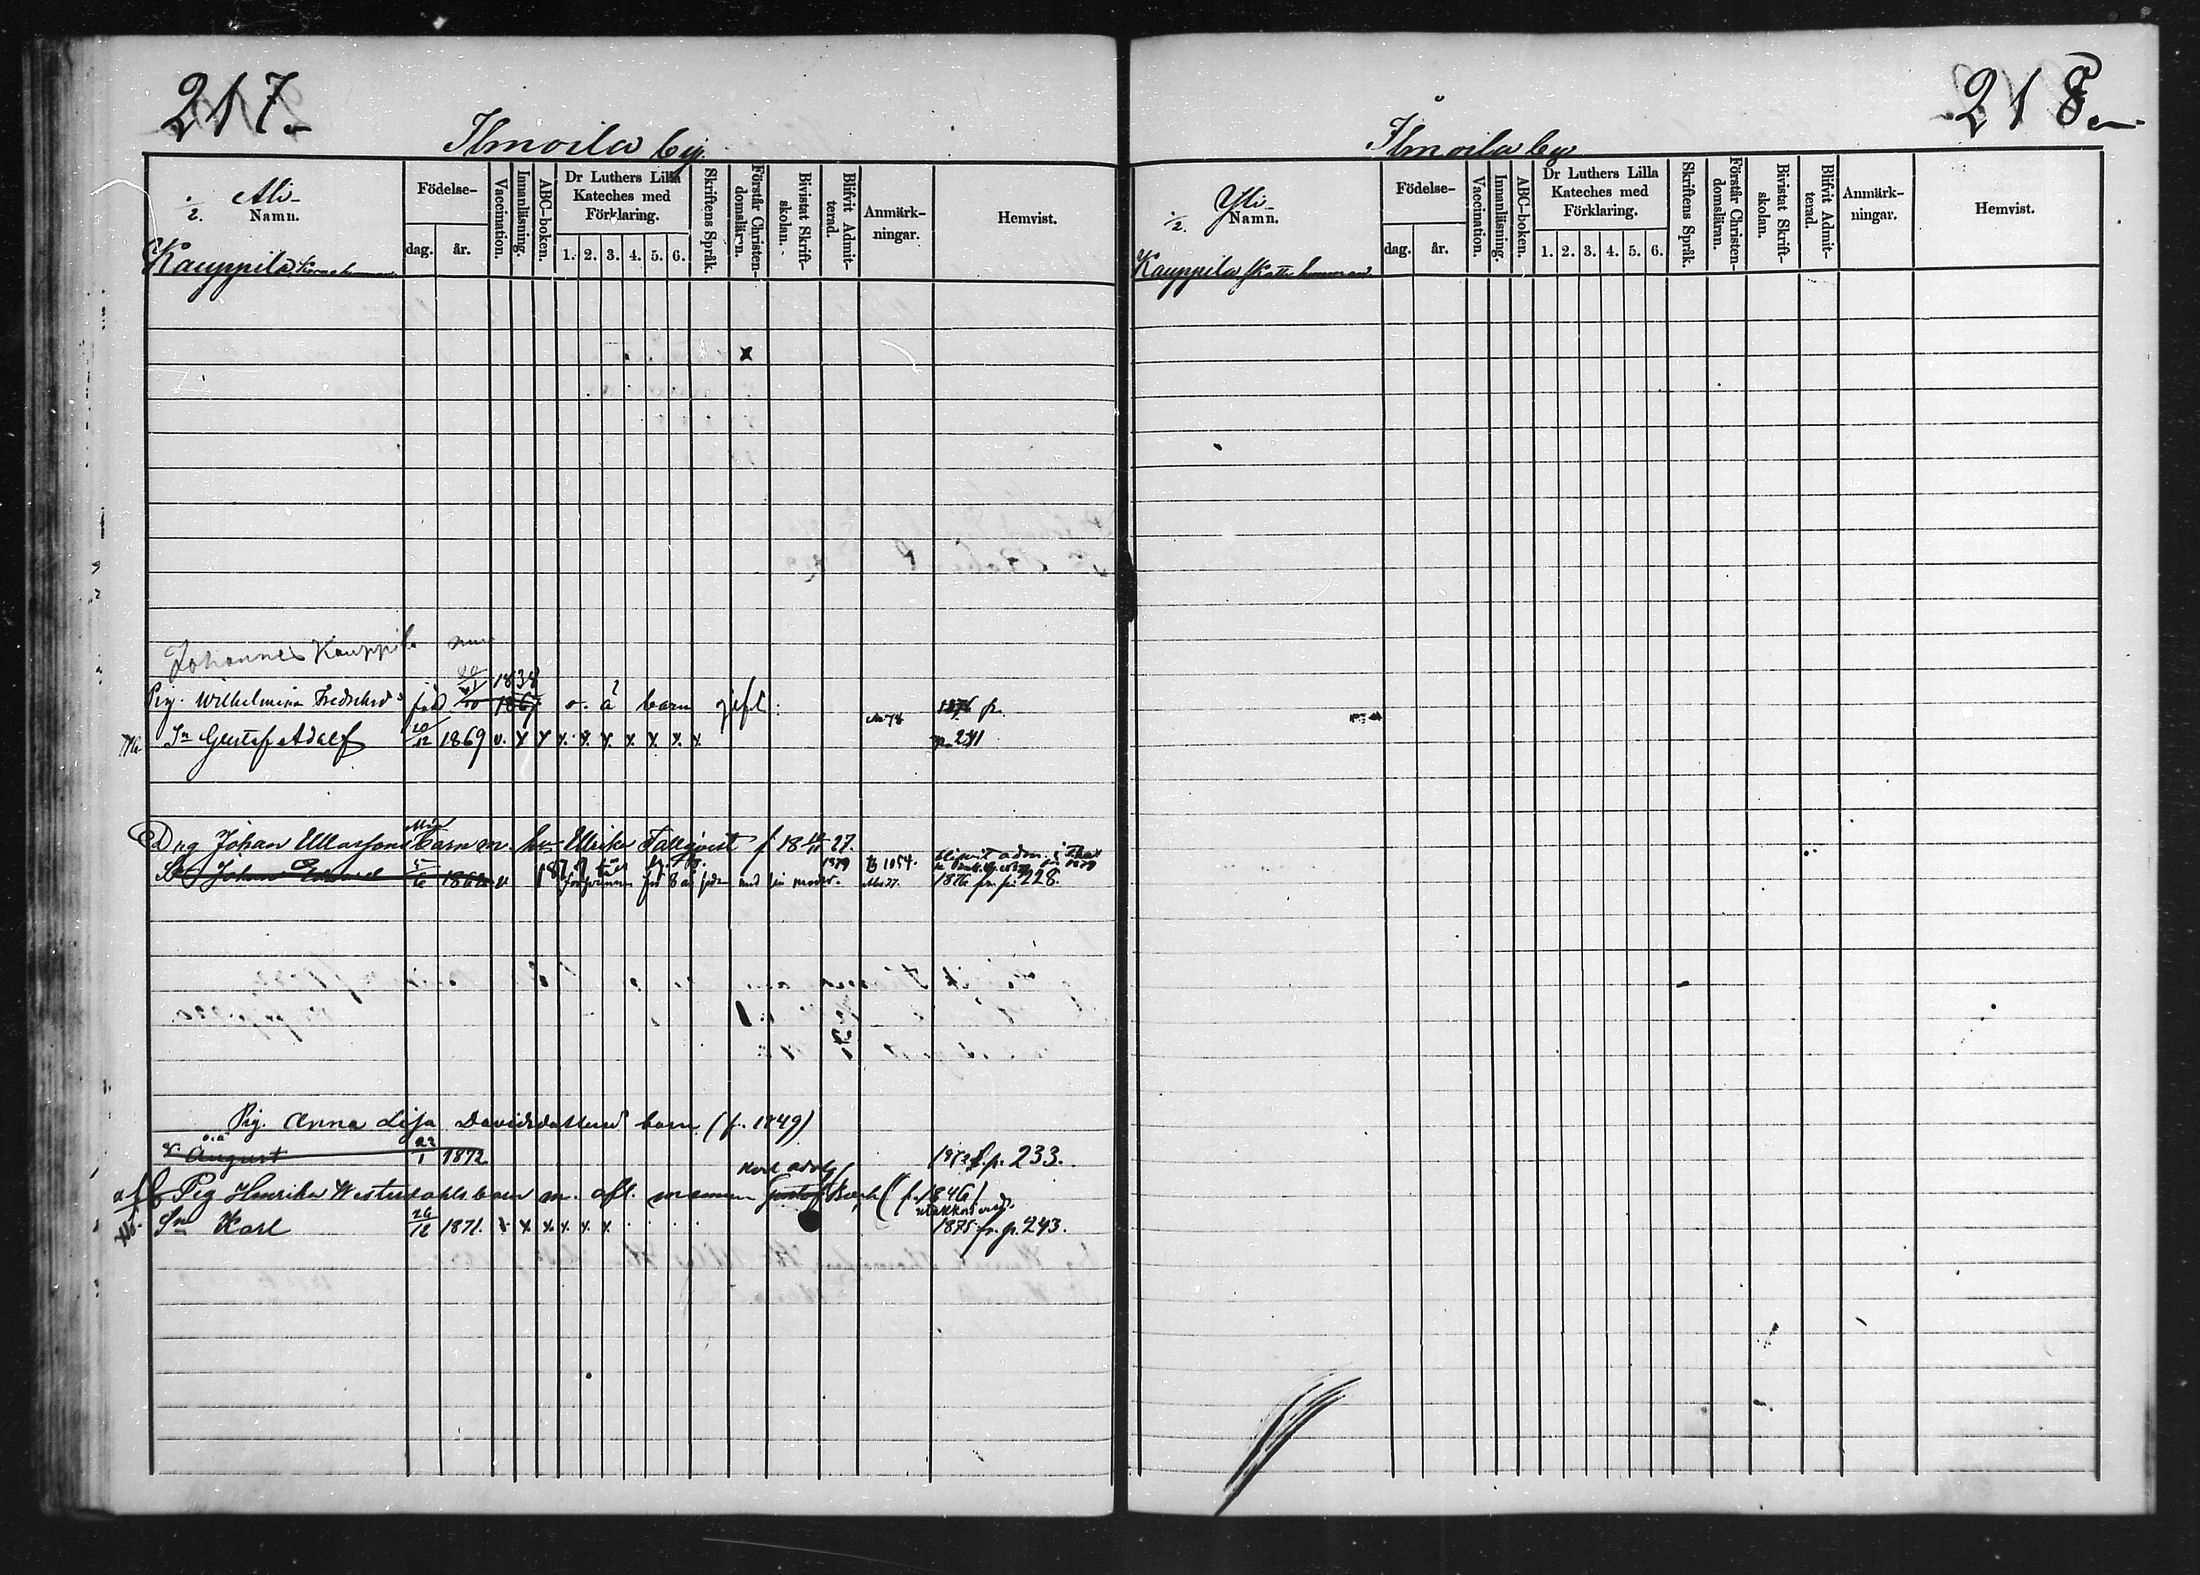 217.
Ilmoila by.
Ali-
1/2. Namn.
Födelse-
dag. år.
Vaccination.
Innanläsning.
ABC-boken.
Dr Luthers Lilla Kateches med Förklaring.
1. 2. 3. 4. 5. 6.
Skriftens Språk.
Förstår Christendomsläran.
Bivistat Skriftskolan.
Blifvit Admitterad.
Anmärkningar.
Hemvist.
Kauppila
x
Johannes Kauppila
1838
Pig. Wilhelmina född 1867 o. ä barn gift 1876 p.
Sn Gustaf Adolf 10/12 1869 v. x x x. x. x. x. x. x. x p. 241
Drg Johan Ullassons barn m. Ulrika Tallqvist f 18 27.
Sn Johan Edvard 5/6 1862 v 1879 B 1054. blifvit adm. i 1879
1876 fr. p. 228.
Pig. Anna Lisa Davidsdotters barn (f. 1849)
o.ä
August 23/1 1872 f.p. 233.
Karl Adolf
Pig Henrika Westerdahls barn m. afl. mannen Gustaf (f. 1846)
Sn Karl 26/12 1871. x x x x x x 1875 fr. p. 243.
218
Ilmoila by
Yli-
1/2. Namn.
Födelse-
dag. år.
Vaccination.
Innanläsning.
ABC-boken.
Dr Luthers Lilla Kateches med Förklaring.
1. 2. 3. 4. 5. 6.
Skriftens Språk.
Förstår Christendomsläran.
Bivistat Skriftskolan.
Blifvit Admitterad.
Anmärkningar.
Hemvist.
Kauppila